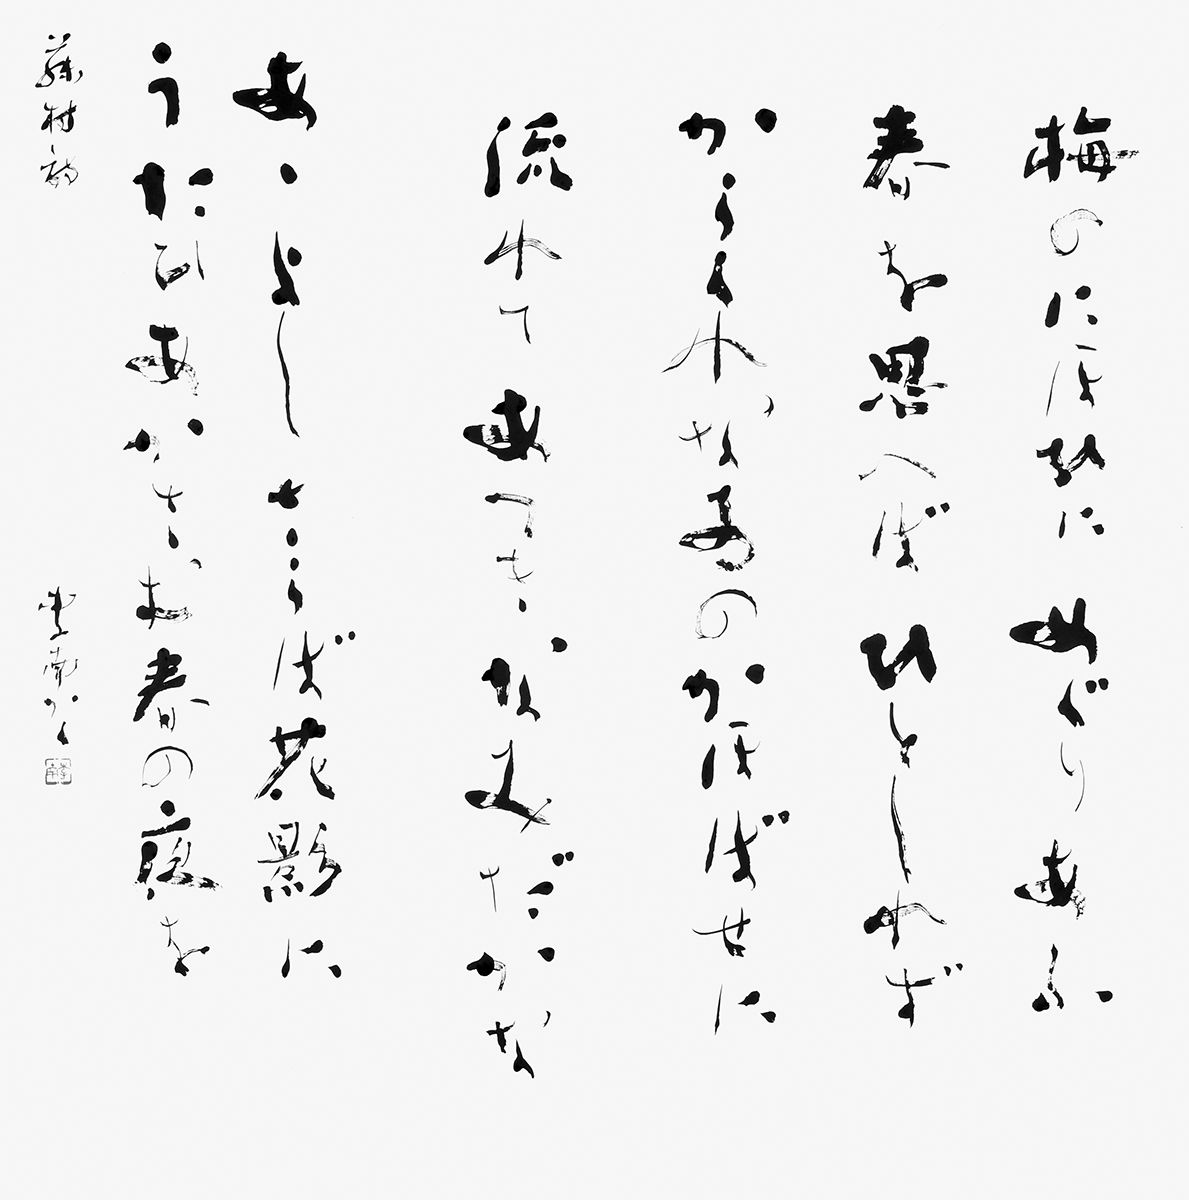 梅のにほひにめぐりあふ
春を思へばひとしれず
からくれなゐのかほばせに
流れてあつきなみだかな
あゝよしさらば花影に
うたひあかさむ春の夜を
藤村詩
かく